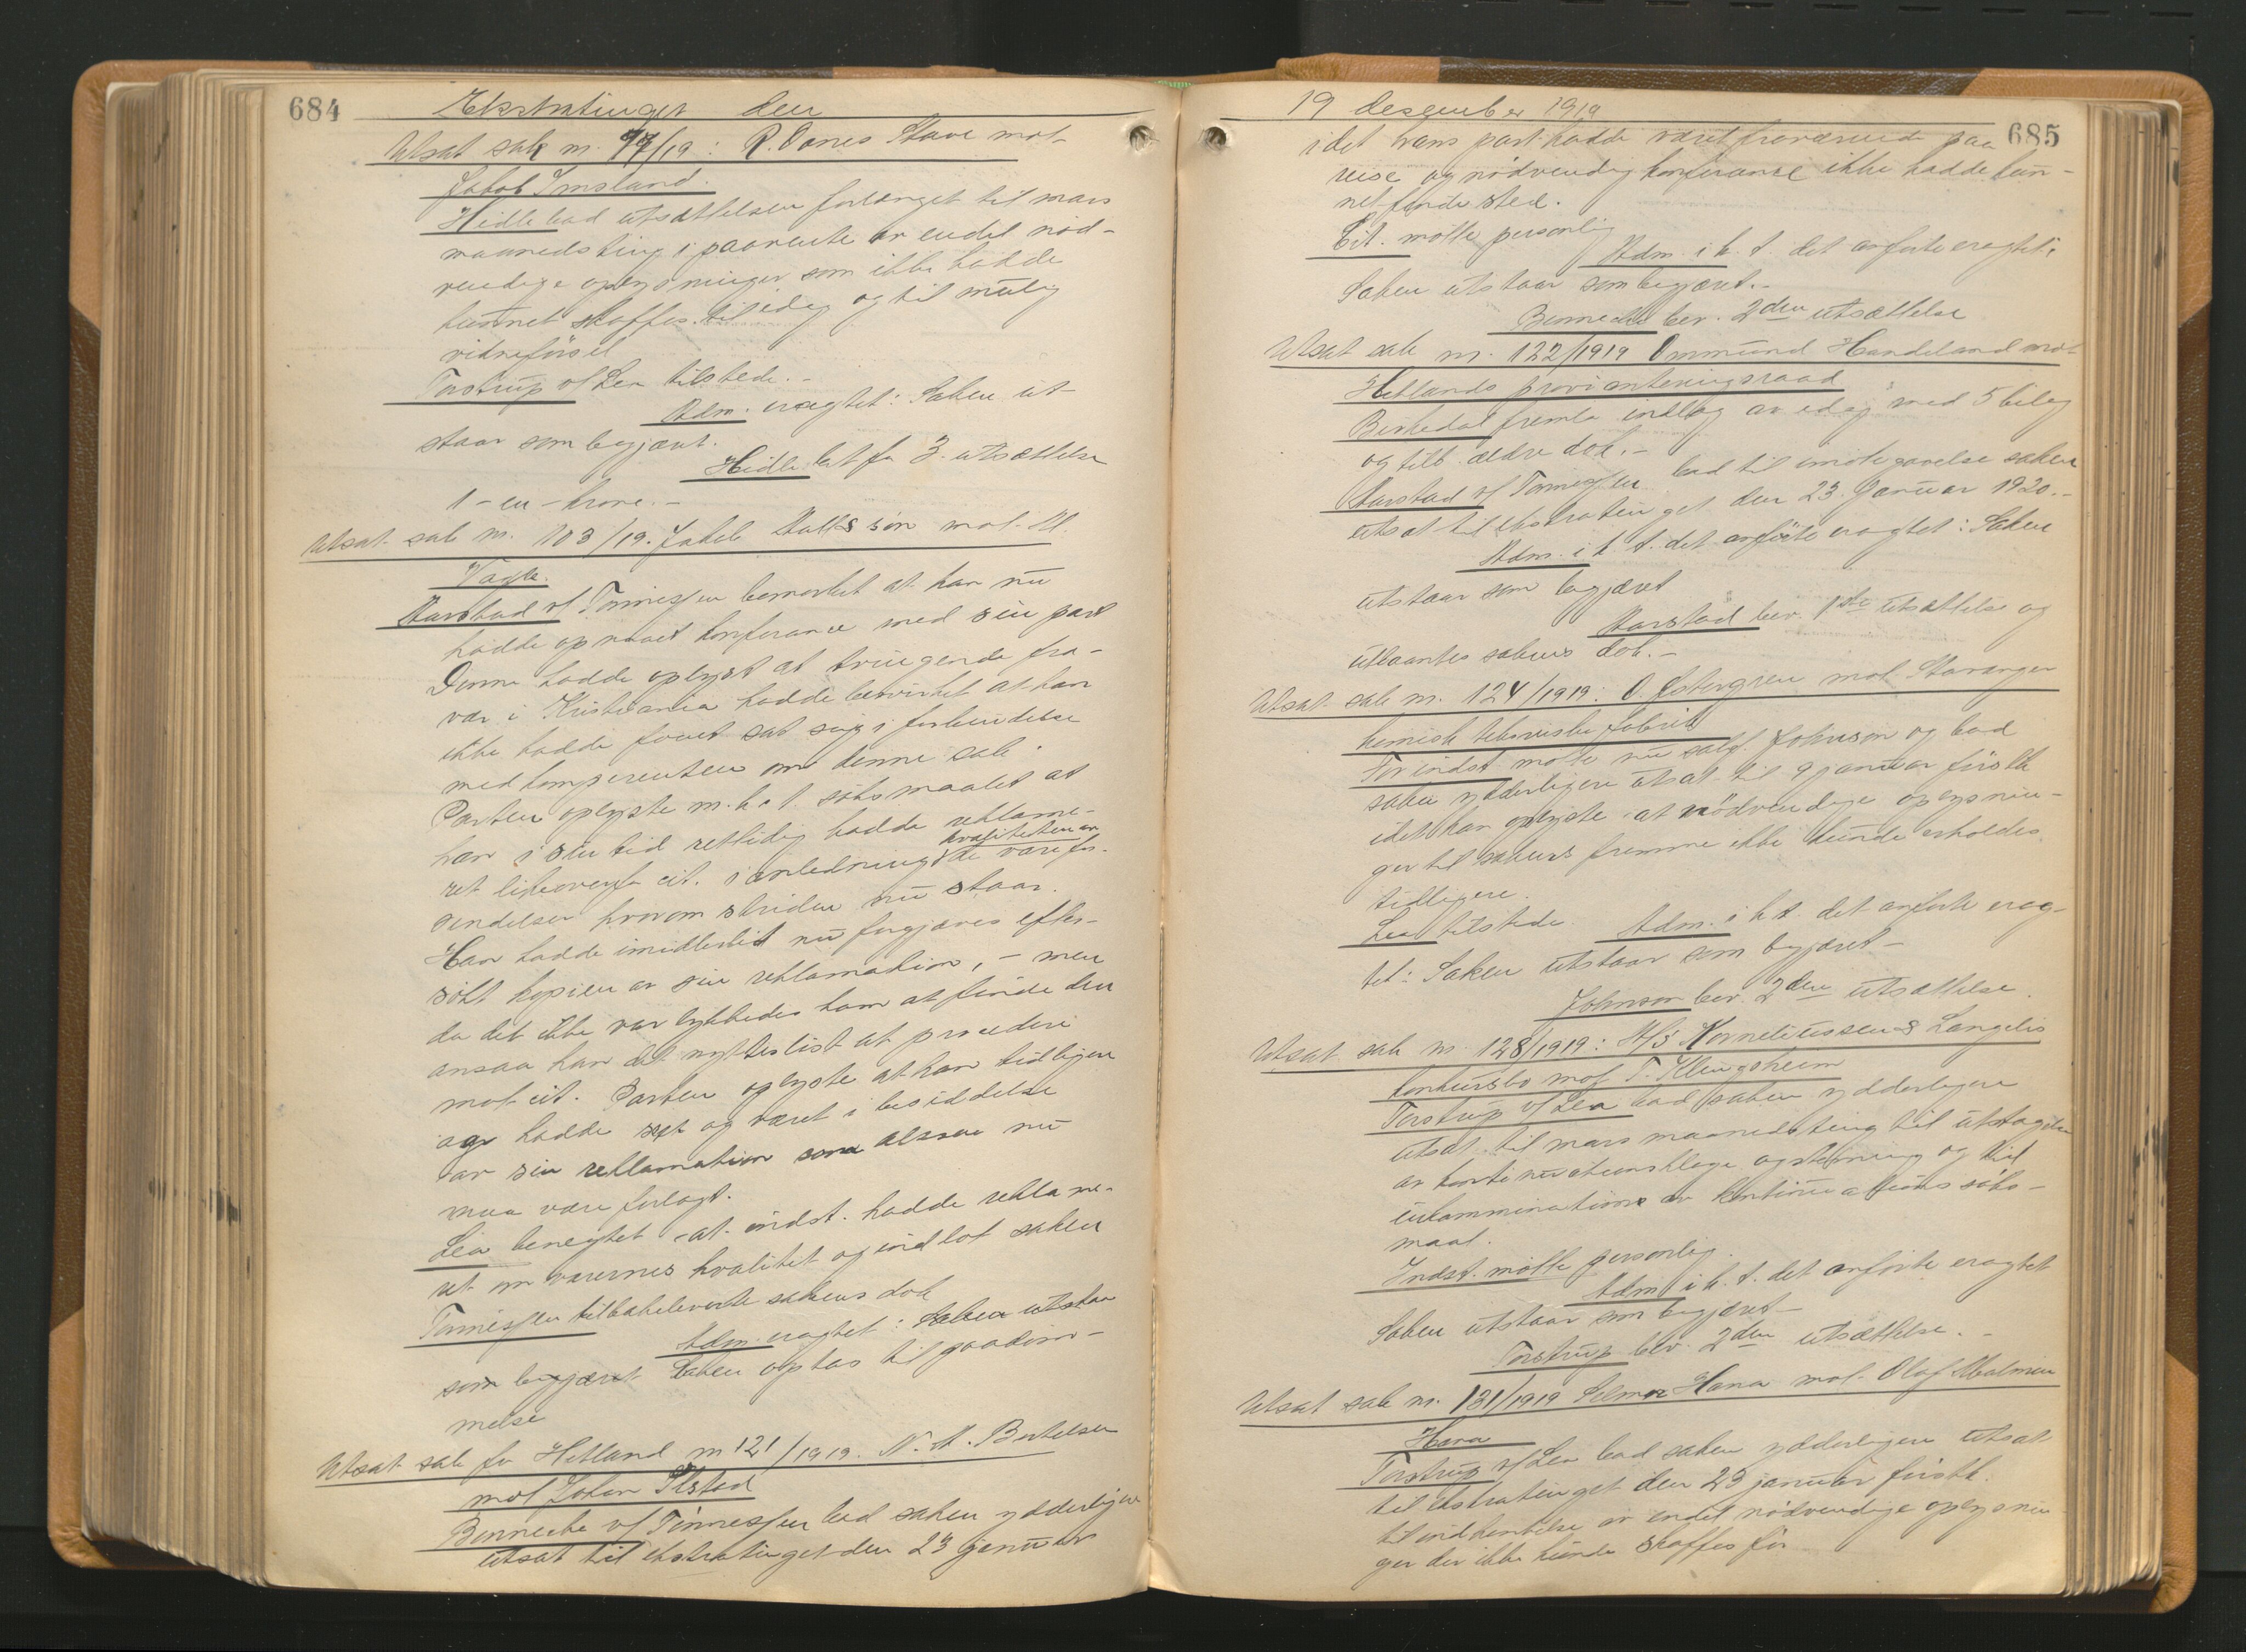 684
Ekstratinget den
Utsat sak nr. 97/19: R. Oanes Stave mot
Jakob Imsland.
Hidle bad utsættelsen forlænget til mars
maanedsting i paavente av endel nød-
vendige oplysninger som ikke hadde
kunnet skaffes til idag og til mulig
vidneførsel
Torstrup v/ Lea tilstede.-
Adm. eragtet: Saken ut-
staar som begjært.
Hidle bet. for 3. utsættelse
1 - en - krone.-
Utsat sak nr. 103/19. Jakob mot M.
Vagle.
Aarstad v/ Tønnessen bemerket at han nu
hadde opnaaet konferance med sin part
Denne hadde oplyst at tvingende fra-
vær i Kristiania hadde bevirket at han
ikke hadde faaet sat sig i forbindelse
med komparenten om denne sak.
Parten oplyste m.h.t. søksmaalet at
han i sin tid rettidig hadde reklame-
ret likeoverfor cit. i anledning kvaliteten av de varefor-
sendelser hvorom striden nu staar.
Han hadde imidlertid nu forgjæves efter-
søkt kopien av sin reklamation, - men
da det ikke var lykkedes ham at finde den
ansaa han det nytteløst at procedere
mot cit. Parten oplyste at han tidligere
ogsaa hadde set og været i besiddelse
av sin reklamation som altsaa nu
maa være forlagt.
Lea benegtet at indst. hadde reklame-
ret om varernes kvalitet og indlot saken
Tønnessen tilbakeleverte sakens dok
Adm. eragtet: Saken utstaar
som begjæret Saken optas til paadøm-
melse
Utsat sak fra Hetland nr 121/1919. N. A. Bertelsen
mot Johan
Bennecke v/ Tønnessen bad saken ydderligere
utsat til ekstratinget den 23 januar
19 desember 1919
685
idet hans part hadde været fraværende paa
reise og nødvendig konferanse ikke hadde kun-
net finde sted.
Cit. møtte personlig
Adm. i h. t. det anførte eragtet:
Saken utstaar som begjæret.-
Bennecke bev. 2den utsættelse
Utsat sak nr. 122/1919 Ommund Handeland mot
Hetlands provianteringsraad
Birkedal fremla indlæg av idag med 5 bilag
og tilb. ældre dok.-
Aarstad v/ Tønnessen bad til imøtegaaelse saken
utsat til ekstratinget den 23. Januar 1920.-
Adm. i h. t. det anførte eragtet: Saken
utstaar som begjæret
Aarstad bev. 1ste utsættelse og
utlaantes sakens dok.-
Utsat sak nr. 124/1919: O. Østergren mot Stavanger
kemisk tekniske fabrik
For indst. møtte nu sakf. Johnson og bad
saken ydderligere utsat til 9 januar førstk
idet han oplyste at nødvendige oplysnin-
ger til sakens fremme ikke kunde erholdes
tidligere.
Lea tilstede. Adm. i h. t. det anførte erag-
tet: Saken utstaar som begjæret -
Johnson bev. 2den utsættelse.
Utsat sak nr. 128/1919: A/S Korneliussens Langelis
konkursbo mot T. Ellingsheim
Torstrup v/ Lea bad saken ydderligere
utsat til mars maanedsting til utstagelse
av kontinuationsklage og stevning og til
inkamination av kontinuations søks-
maal.
Indst. møtte personlig.
Adm. i h. t. det anførte eragtet
Saken utstaar som begjæret -
Torstrup bev. 2den utsættelse.-
Utsat sak nr. 131/1919 Selmer Hana mot Olaf Malmin
Hana
Torstrup v/ Lea bad saken ydderligere utsat
til ekstratinget den 23 januar førstk.
til indhentelse av endel nødvendige oplysnin
ger der ikke kunde skaffes før